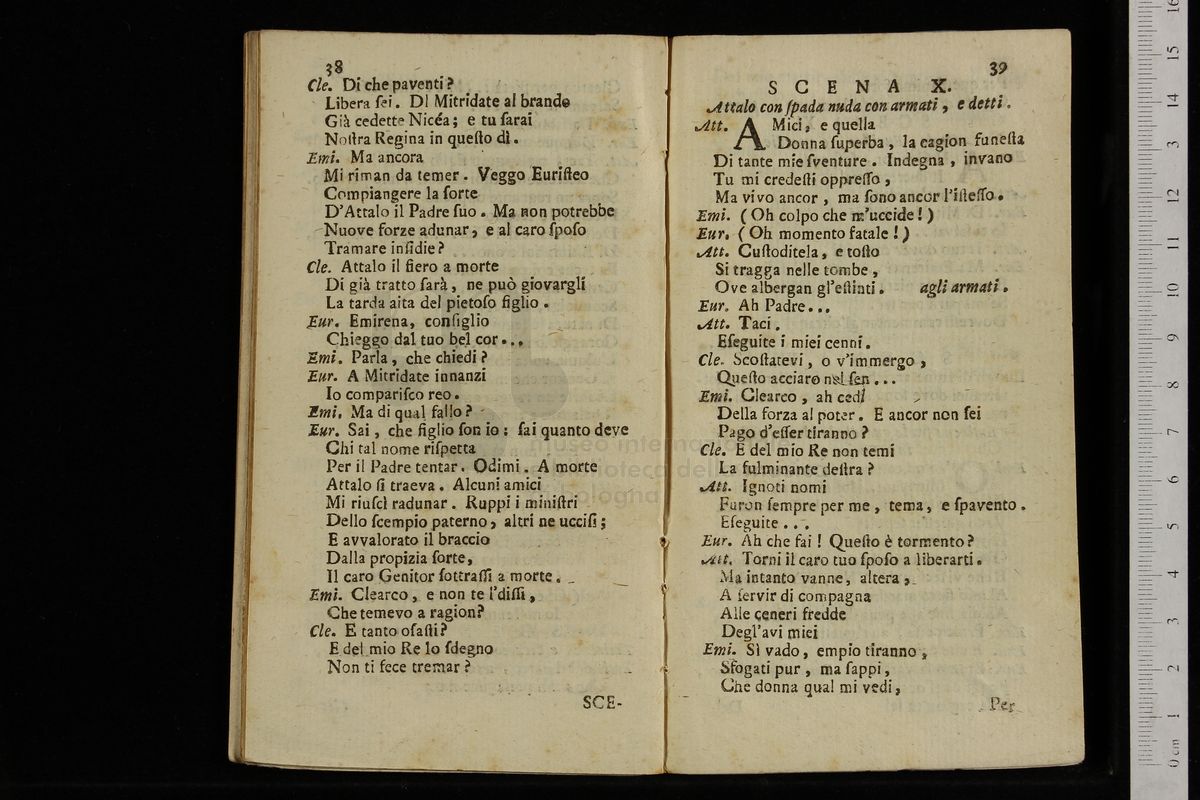 38
Cle. Di che paventi?
Libera ſei. Di Mitridate al brando
Già cedette Nicéa; e tu ſarai
Noſtra Regina in queſto dì.
Emi. Ma ancora
Mi riman da temer. Veggo Euriſteo
Compiangere la ſorte
D'Attalo il Padre ſuo. Ma non potrebbe
Nuove forze adunar, e al caro ſpoſo
Tramare inſidie?
Cle. Attalo il fiero a morte
Di già tratto ſarà, ne può giovargli
La tarda aita del pietoſo figlio.
Eur. Emirena, conſiglio
Chieggo dal tuo bel cor...
Emi. Parla, che chiedi?
Eur. A Mitridate innanzi
Io compariſco reo.
Emi. Ma di qual fallo?
Eur. Sai, che figlio ſon io; ſai quanto deve
Chi tal nome riſpetta
Per il Padre tentar. Odimi. A morte
Attalo ſi traeva. Alcuni amici
Mi riuſcì radunar. Ruppi i miniſtri
Dello ſcempio paterno, altri ne ucciſi;
E avvalorato il braccio
Dalla propizia ſorte,
Il caro Genitor ſottraſſi a morte.
Emi. Clearco, e non te l'diſſi,
Che temevo a ragion?
Cle. E tanto oſaſti?
E del mio Re lo ſdegno
Non ti fece tremar?
SCE-
39
SCENA X.
Attalo con ſpada nuda con armati, e detti.
Att. AMici, e quella
Donna ſuperba, la cagion funeſta
Di tante mie ſventure. Indegna, invano
Tu mi credeſti oppreſſo,
Ma vivo ancor, ma ſono ancor l'iſteſſo.
Emi. (Oh colpo che m'uccide!)
Eur. (Oh momento fatale!)
Att. Cuſtoditela, e toſto
Si tragga nelle tombe,
Ove albergan gl'eſtinti. agli armati.
Eur. Ah Padre...
Att. Taci.
Eſeguite i miei cenni.
Cle. Scoſtatevi, o v'immergo,
Queſto acciaro nel ſen...
Emi. Clearco, ah cedi
Della forza al poter. E ancor non ſei
Pago d'eſſer tiranno?
Cle. E del mio Re non temi
La fulminante deſtra?
Att. Ignoti nomi
Furon ſempre per me, tema, e ſpavento.
Eſeguite...
Eur. Ah che fai! Queſto è tormento?
Att. Torni il caro tuo ſpoſo a liberarti.
Ma intanto vanne, altera,
A ſervir di compagna
Alle ceneri fredde
Degl'avi miei
Emi. Sì vado, empio tiranno,
Sfogati pur, ma ſappi,
Che donna qual mi vedi,
Per